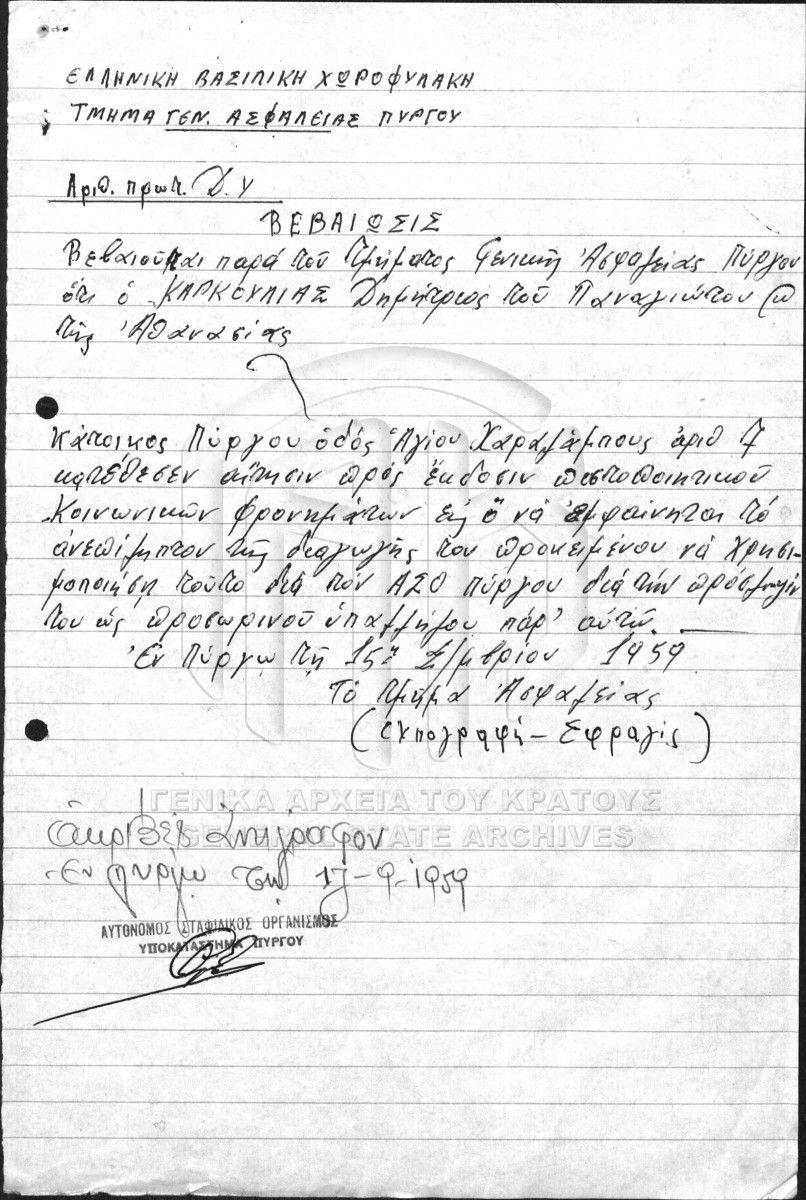 ΕΛΛΗΝΙΚΗ ΒΑΣΙΛΙΚΗ ΧΩΡΟΦΥΛΑΚΗ
ΤΜΗΜΑ ΓΕΝ. ΑΣΦΑΛΕΙΑΣ ΠΥΡΓΟΥ
Αριθ. πρωτ. Δ.Υ
ΒΕΒΑΙΩΣΙΣ
Βεβαιούται παρά του Τμήματος Γενικής Ἀσφαλείας Πύργου
ότι ὁ ΚΑΡΚΟΥΛΙΑΣ Δημήτριος τοῦ Παναγιώτου
τῆς Ἀθανασίας
Κάτοικος Πύργου ὁδός Ἁγίου Χαραλάμπους ἀριθ 7
κατέθεσεν αἴτησιν πρός ἔκδοσιν πιστοποιητικοῦ
Κοινωνικῶν φρονημάτων εἰς ὅ νά ἐμφαίνηται τό
ἀνεπίληπτον τῆς διαγωγῆς του προκειμένου νά χρησι-
μοποιήση τοῦτο διά τόν ΑΣΟ Πύργου διά τήν πρόσληψίν
του ὡς προσωρινοῦ ὑπαλλήλου παρ' αὐτῷ.
Ἐν Πύργῳ τῇ 15ῃ 7/μβρίου 1959
Τό Τμῆμα Ἀσφαλείας
(Υπογραφή - Σφραγίς)
ΓΕΝΙΚΑ ΑΡΧΕΙΑ ΤΟΥ ΚΡΑΤΟΥΣ
GENERAL STATE ARCHIVES
Ἀκριβές Ἀντίγραφον
Ἐν Πύργῳ τῇ 17-9-1959
ΑΥΤΟΝΟΜΟΣ ΣΤΑΦΙΔΙΚΟΣ ΟΡΓΑΝΙΣΜΟΣ
ΥΠΟΚΑΤΑΣΤΗΜΑ ΠΥΡΓΟΥ